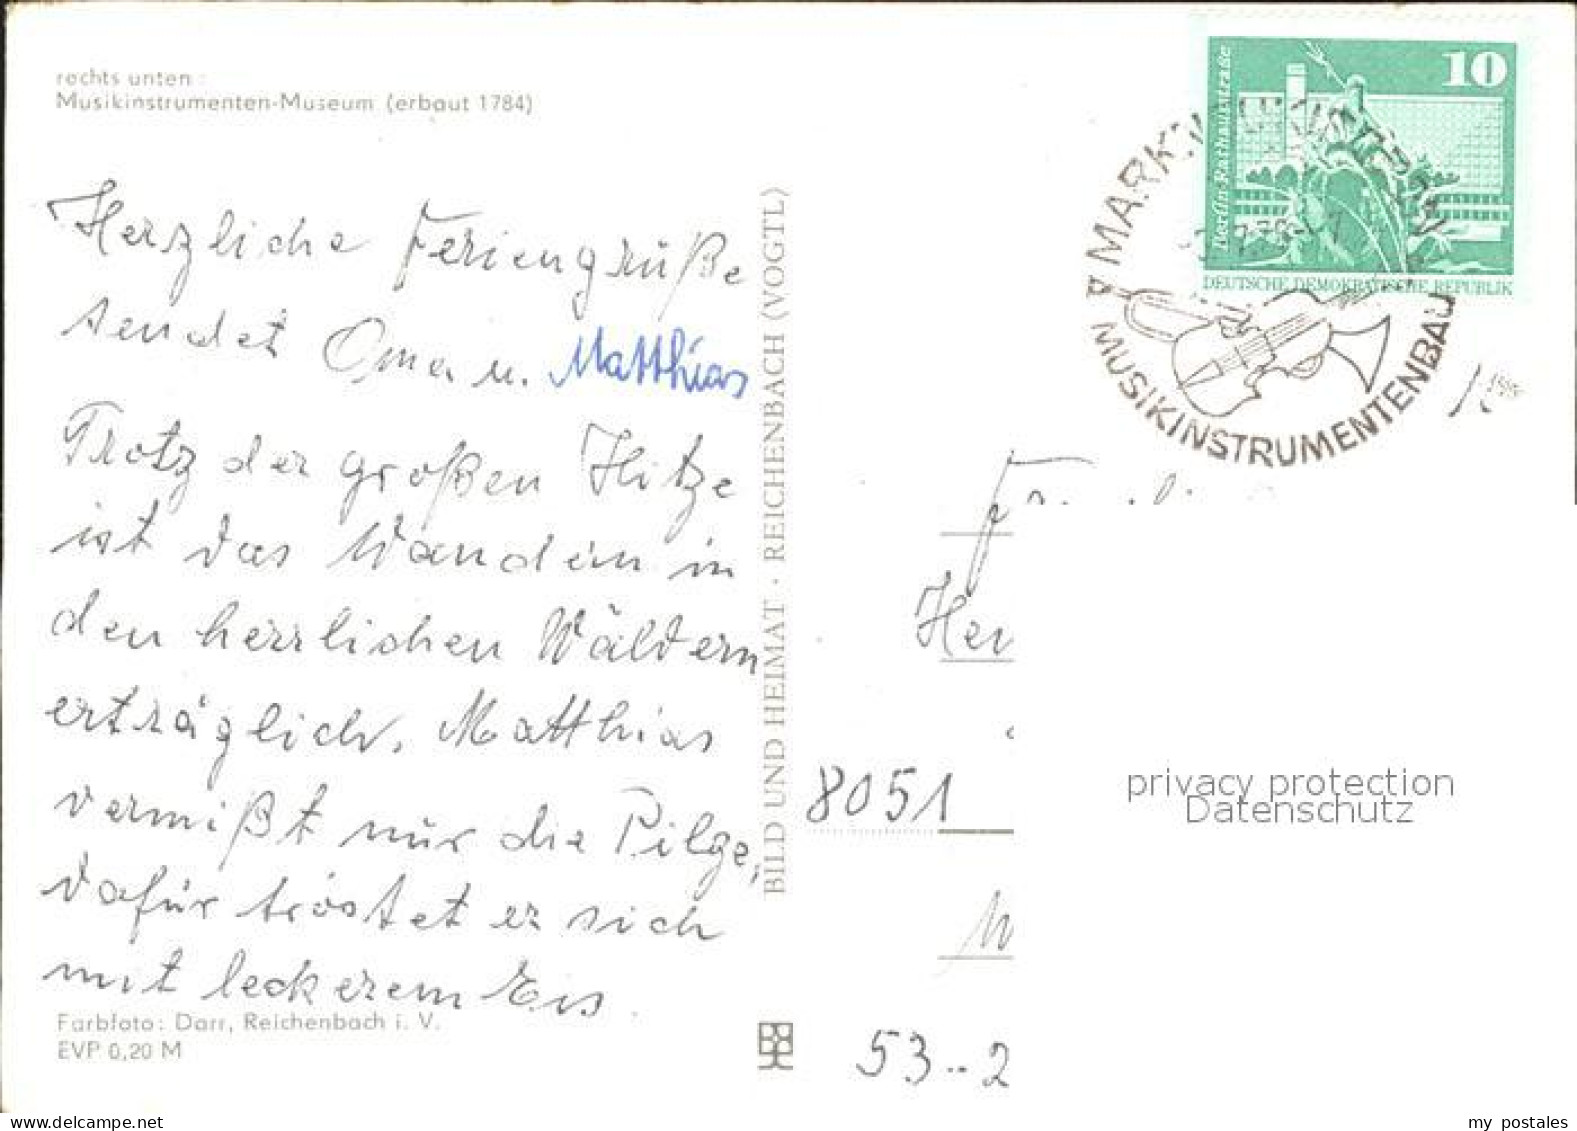 rechts unten:
Musikinstrumenten-Museum (erbaut 1784)
Herzliche Feriengrüße
sendet Oma u. Matthias
Trotz der großen Hitze
ist das Wandern in
den herrlichen Wäldern
erträglich. Matthias
vermißt nur die Pilze,
dafür tröstet er sich
mit leckerem Eis.
Farbfoto: Darr, Reichenbach i. V.
EVP 0,20 M
BILD UND HEIMAT · REICHENBACH (VOGTL)
10
Berlin, Rathausstraße
DEUTSCHE DEMOKRATISCHE REPUBLIK
MUSIKINSTRUMENTENBAU
8051
53..2
privacy protection
Datenschutz
www.delcampe.net
my_postales